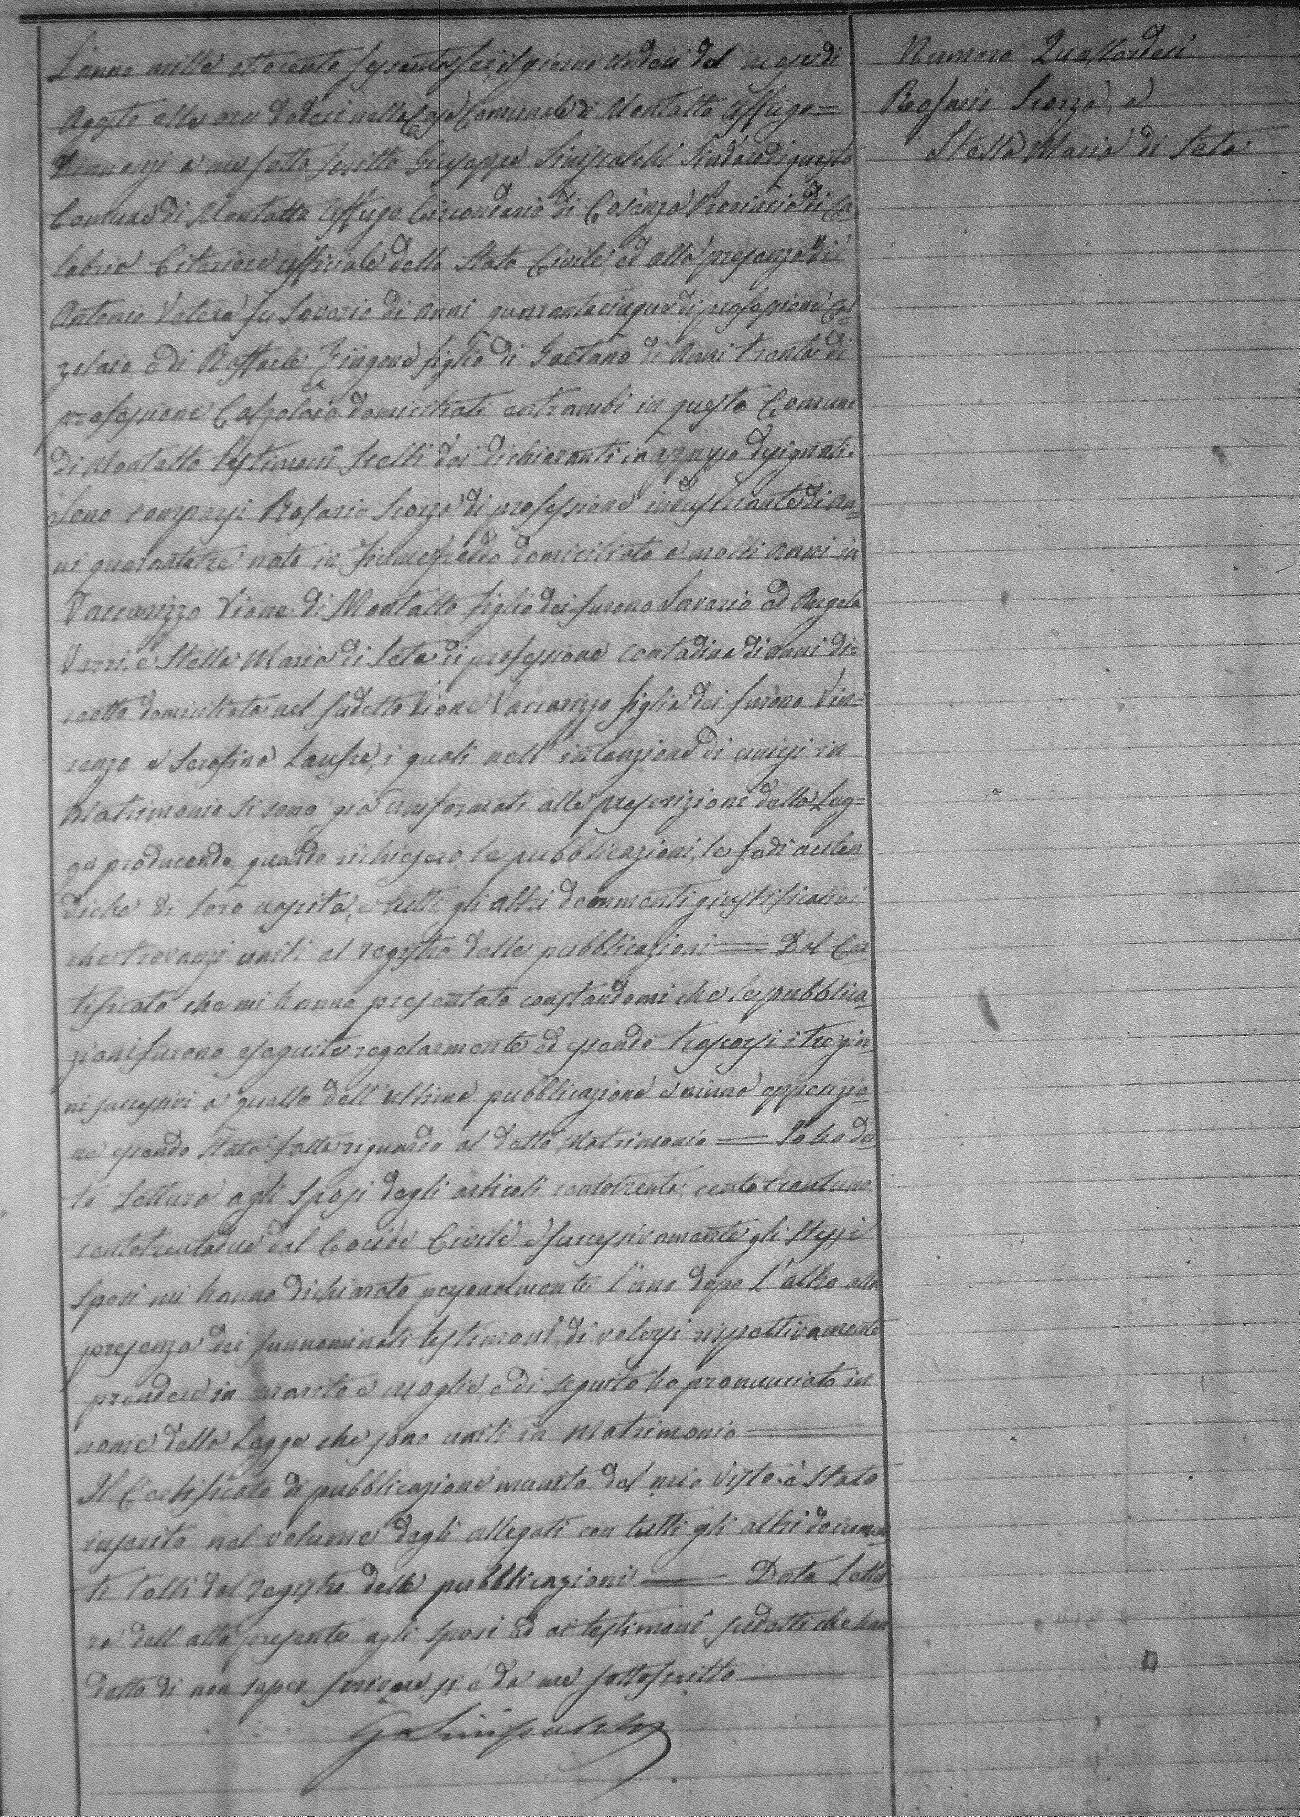 Numero Quattordici
Rosario Scorzo, e
Stella Maria di Seta
L'anno mille ottocento sessantasei, il giorno undeci del mese di
Agosto alle ore dodeci nella Casa Comunale di Montalto Uffugo=
Innanzi a me sotto scritto Giuseppe Sindaco di questo
Comune di Montalto Uffugo Circondario di Cosenza Provincia di Ca
labria Citeriore uffiziale dello Stato Civile, ed alla presenza di
Antonio Vetere fu Saverio di anni quarantacinque di professione Cal
zolaro e di Raffaele Zingone figlio di Gaetano di Anni trenta di
professione Calzolaio domiciliati entrambi in questo Comune
di Montalto testimonî scelti dai dichiaranti in appresso designati.
Sono comparsi Rosario Scorzo di professione industriante di an=
ni quarantatre nato in Fiumefreddo domiciliato a molti anni in
Vaccarizzo Vione di Montalto figlio dei furono Saverio ed Angela
e Stella Maria di Seta di professione contadina di anni di=
ciotto domiciliata nel sudetto Vione Vaccarizzo figlia dei furono Vin=
cenzo e Serafina i quali nell' intenzione di unirsi in
Matrimonio si sono già uniformati alle prescrizioni della Leg=
ge producendo, quando richiesero le pubblicazioni, le fedi auten
tiche di loro nascita, e tutti gli altri documenti giustificativi
che trovansi uniti al registro delle pubblicazioni — Dal Cer
tificato che mi hanno presentato constandomi che le pubblica=
zioni furono eseguite regolarmente ed essendo trascorsi i tre gior=
ni successivi a quello dell' ultima pubblicazione e niuna opposizio=
ne essendo stata fatta riguardo al detto Matrimonio — Io ho da
to lettura agli sposi degli articoli centotrenta, centotrentuno
centotrentadue del Codice Civile e successivamente gli stessi
sposi mi hanno dichiarato personalmente l'uno dopo l'altro alla
presenza dei sunnominati testimonî, di volersi rispettivamente
prendere in marito e moglie, e di seguito ho pronunciato in
nome della Legge che sono uniti in Matrimonio —
Il Certificato di pubblicazione munito del mio visto è stato
inserito nel volume degli allegati con tutti gli altri documen
ti tolti dal registro delle pubblicazioni — Data lettu
ra dell' atto presente agli sposi ed ai testimonî sudetti che han
detto di non saper scrivere si è da me sottoscritto —